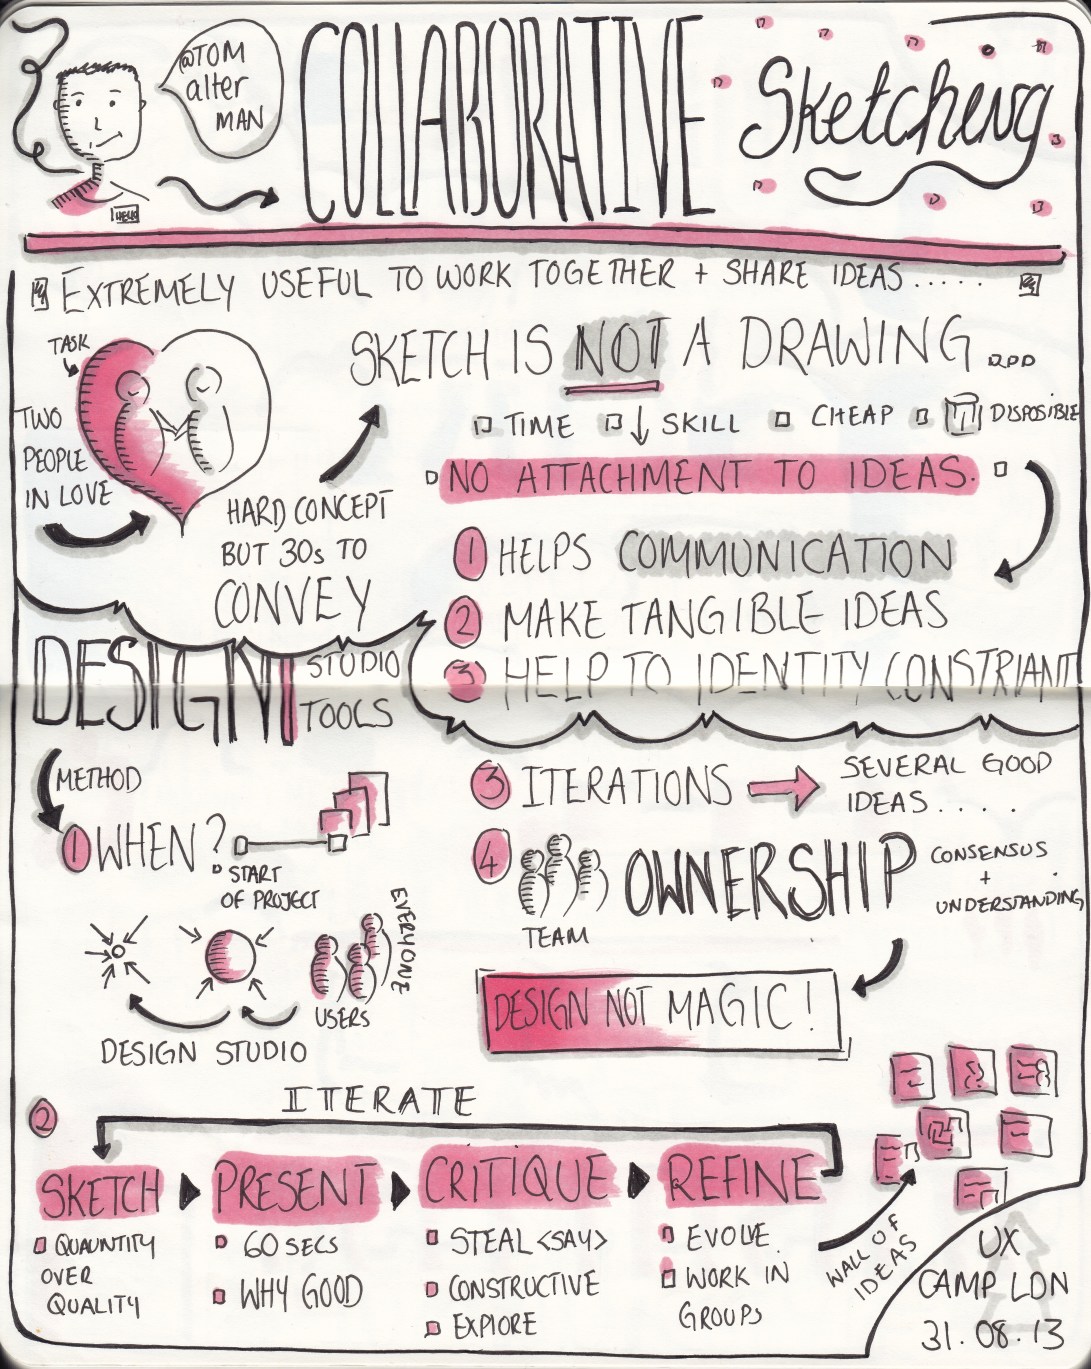 @TOM
alter
MAN
HELLO
COLLABORATIVE
Sketching
EXTREMELY USEFUL TO WORK TOGETHER + SHARE IDEAS.....
TASK
TWO
PEOPLE
IN LOVE
HARD CONCEPT
BUT 30s TO
CONVEY
SKETCH IS NOT A DRAWING
TIME ↓ SKILL CHEAP DISPOSIBLE
NO ATTACHMENT TO IDEAS.
1 HELPS COMMUNICATION
2 MAKE TANGIBLE IDEAS
3 HELP TO IDENTITY CONSTRIANT
DESIGN
STUDIO
TOOLS
METHOD
1 WHEN?
START
OF PROJECT
EVERYONE
USERS
DESIGN STUDIO
3 ITERATIONS → SEVERAL GOOD
IDEAS....
4 OWNERSHIP
TEAM
CONSENSUS
+
UNDERSTANDING
DESIGN NOT MAGIC!
2
ITERATE
SKETCH
QUAUNTITY
OVER
QUALITY
PRESENT
60 SECS
WHY GOOD
CRITIQUE
STEAL <SAY>
CONSTRUCTIVE
EXPLORE
REFINE
EVOLVE
WORK IN
GROUPS
WALL OF
IDEAS
UX
CAMP LDN
31.08.13